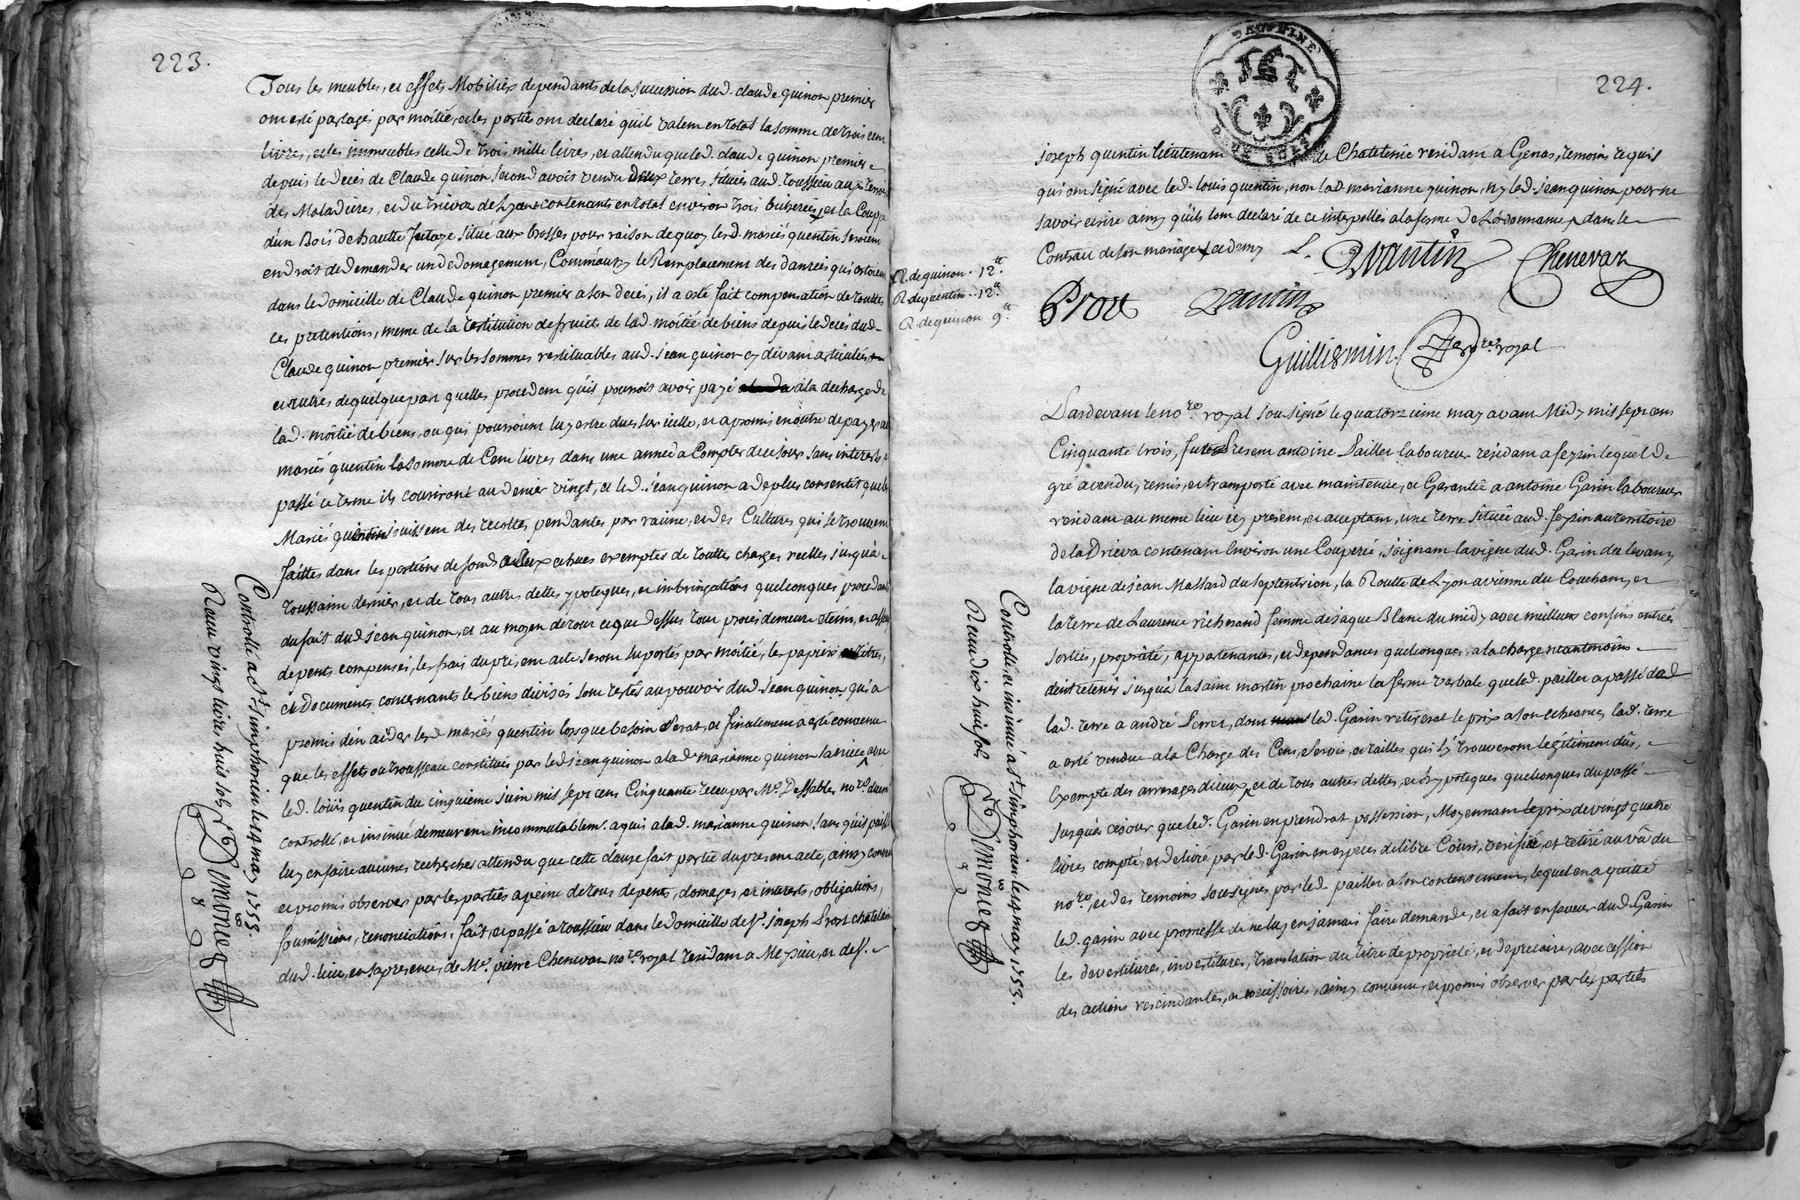 223.
Tous les meubles, et effets Mobiliers dependants de la succession dud. claude quinon premier
ont esté partagés par moitié, et les parties ont declaré quils valent en total la somme de trois cent
livres, et les immeubles celle de trois mille livres, et attendu que led. claude quinon premier
depuis le deces de Claude quinon second avoit vendu deux terres situées aud. toussieu aux terroirs
des Maladieres, et du trievoz de Lyon contenants en total environ trois bicherées, et la Couppe
d'un Bois de haute futaye situé aux brosses pour raison de quoy lesd. mariés quentin seroient
en droit de demander un dedomagement, Comm'aussy le Remplacement des danrées qui estoient
dans le domicille de Claude quinon premier a son deces, il a esté fait compensation de touttes
ces pretentions, meme de la restitution de fruict de lad. moitié de biens depuis le deces dud.
Claude quinon premier sur les sommes restituables aud. jean quinon cy devant articulées
et autres de quelque part quelles procedent quil pourroit avoir payé a la decharge de
lad. moitié de biens, ou qui pourroient luy estre dues sur icelle, et a promis en outre de payer aud.
mariés quentin la somme de Cent livres dans une année a Compter de ce jour sans interest
passé ce terme ils courriront au denier vingt, et led. jean quinon a de plus consenti que les
Mariés quentin jouissent des recoltes pendantes par racine, et des Cultures qui se trouvent
faittes dans les portions de fonds a eux echues exemptes de touttes charges reelles jusqu'a
toussaint dernier, et de tous autres dettes ypoteques, et imbringations quelconques procedant
du fait dud. jean quinon, et au moyen de tout ce que dessus tout procès demeure eteint, et assoupi
depents compensés, les frais du present acte seront suportés par moitié, les papiers
et Documents concernants les biens divisés sont restés au pouvoir dud. jean quinon qui a
promis d'en aider lesd. mariés quentin lorsque besoin serat, et finalement a esté convenu
que les effets ou trousseau constitués par led. jean quinon a lad. marianne quinon sa niece avec
led. louis quentin du cinquieme juin mil sept cens Cinquante receu par Me. Dessables nore. duem.
controllé, et insinué demeurent incommutablemt. aquis a lad. marianne quinon sans quil puisse
luy en faire aucunes recherches attendu que cette clause fait partie du present acte, ainsy convenu
et promis observer par les parties a peine de tous depents, domages, et interests, obligations,
soumissions, renonciations. fait, et passé a toussieu dans le domicille de Sr. joseph Prost chatelain
dud. lieu, en sa presence, de Me. pierre Chenevan nore. royal residant a Meyzieu, et de Sr.
Controllé a St. simphorien le 14 may 1753.
Receu vingt livres huit sols
Demornieu
224.
DAUPHINE
joseph quentin lieutenant de Chatelenie residant a Genas, temoins requis
qui ont signé avec led. louis quentin, non lad. marianne quinon, ny led. jean quinon pour ne
savoir ecrire ainsy quils l'ont declaré de ce interpellés a la forme de L'ordonnance, dans le
Contrat de son mariage
R. de quinon. 12tt.
R. de quentin. 12tt.
R. de quinon 9tt.
L. Quantin Chenevaz
Prost Quantin
Guillermin nore. royal
Pardevant le nore. royal soussigné le quatorzieme may avant Midy mil sept cens
Cinquante trois, fut present antoine Paillet laboureur residant a feyzin lequel de
gré a vendu, remis, et transporté avec maintenue, et Garantie a antoine Garin laboureur
residant au meme lieu icy present, et acceptant, une terre située aud. feyzin au territoire
de la Drieva contenant Environ une Couperée, joignant la vigne dud. Garin du levant,
la vigne de jean Massard du septentrion, la Routte de Lyon a vienne du Couchant, et
la terre de Laurence richerand femme de jaque Blanc du midy avec meilleurs confins entrées
sorties, proprieté, appartenances, et dependances quelconques, a la charge neantmoins
d'entretenir jusqu'a la saint martin prochaine la ferme verbale que led. paillet a passé de
lad. terre a andré Perret, dont led. Garin retirerat le prix a son echeance, lad. terre
a esté vendue a la Charge des Cens, servis, et tailles qui s'y trouveront legitimement dûs,
Exempte des arrerages d'iceux, et de tous autres dettes, et hypoteques quelconques du passé
jusqu'a ce jour que led. Garin en prendrat possession, Moyennant le prix de vingt quatre
livres compté, et deliré par led. Garin en especes de libre Cours, verifié, et retiré au vû du
nore. et des temoins soussignés par led. paillet a son contentement, lequel en a quitté
led. garin avec promesse de ne luy en jamais faire demande, et a fait en faveur dud. Garin
les devestitures, investitures, translation du titre de proprieté, et de precaire, avec cession
des actions rescindantes, et rescissoires, ainsy convenu, et promis observer par les parties
Controllé, et insinué a St. simphorien le 14 may 1753.
Receu dix huit sols
Demornieu